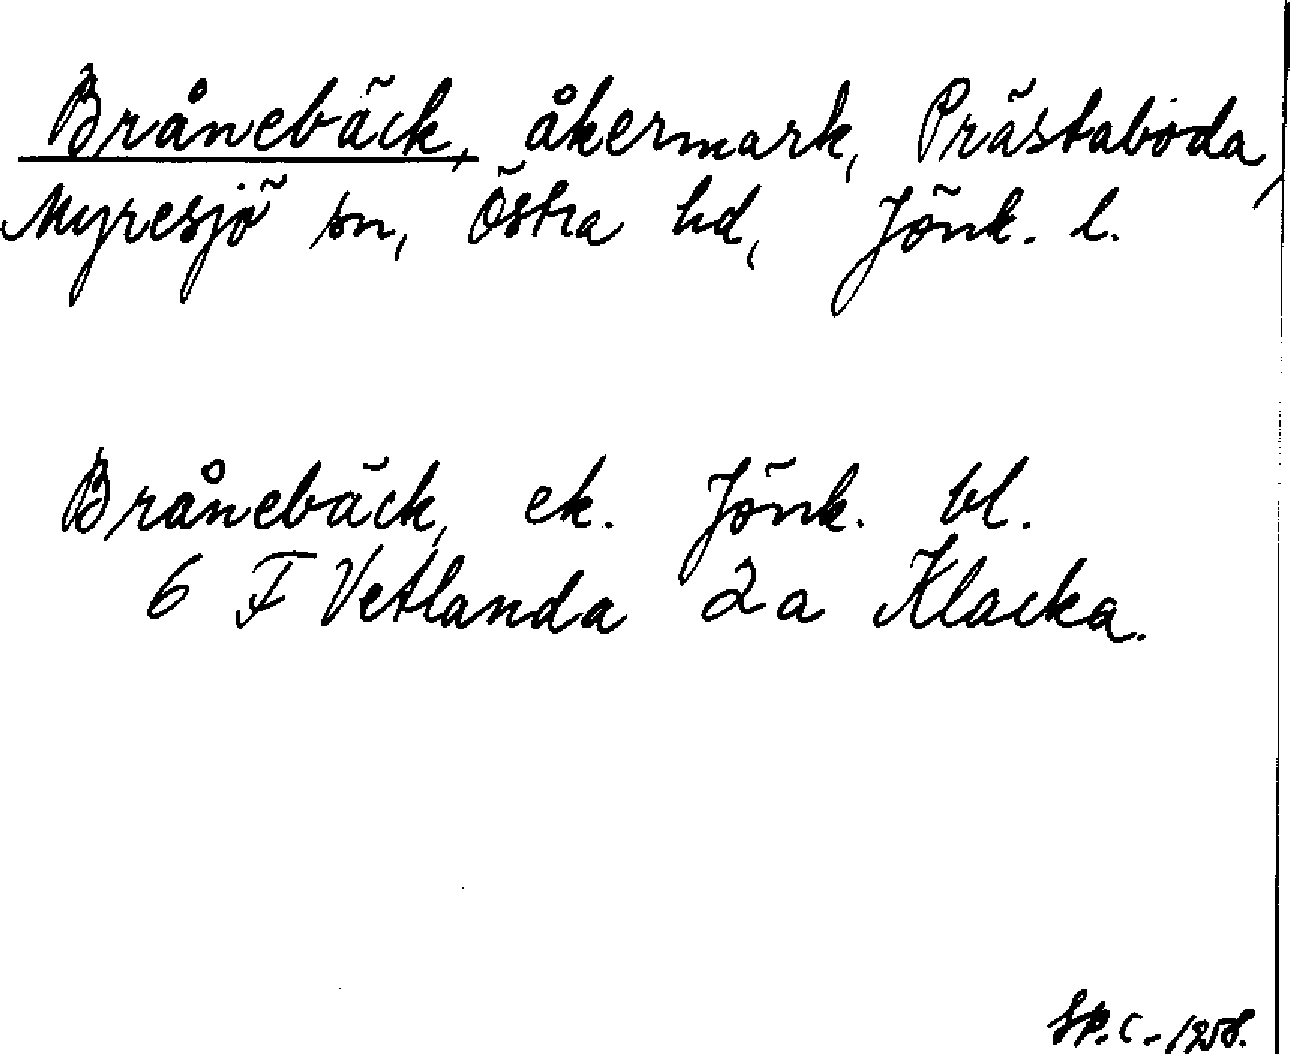 Brånebäck, åkermark, Prästaboda,
Myresjö sn, Östra hd, Jönk. l.
Brånebäck, ek. Jönk. bl.
6 F Vetlanda 2a Klacka.
1958.